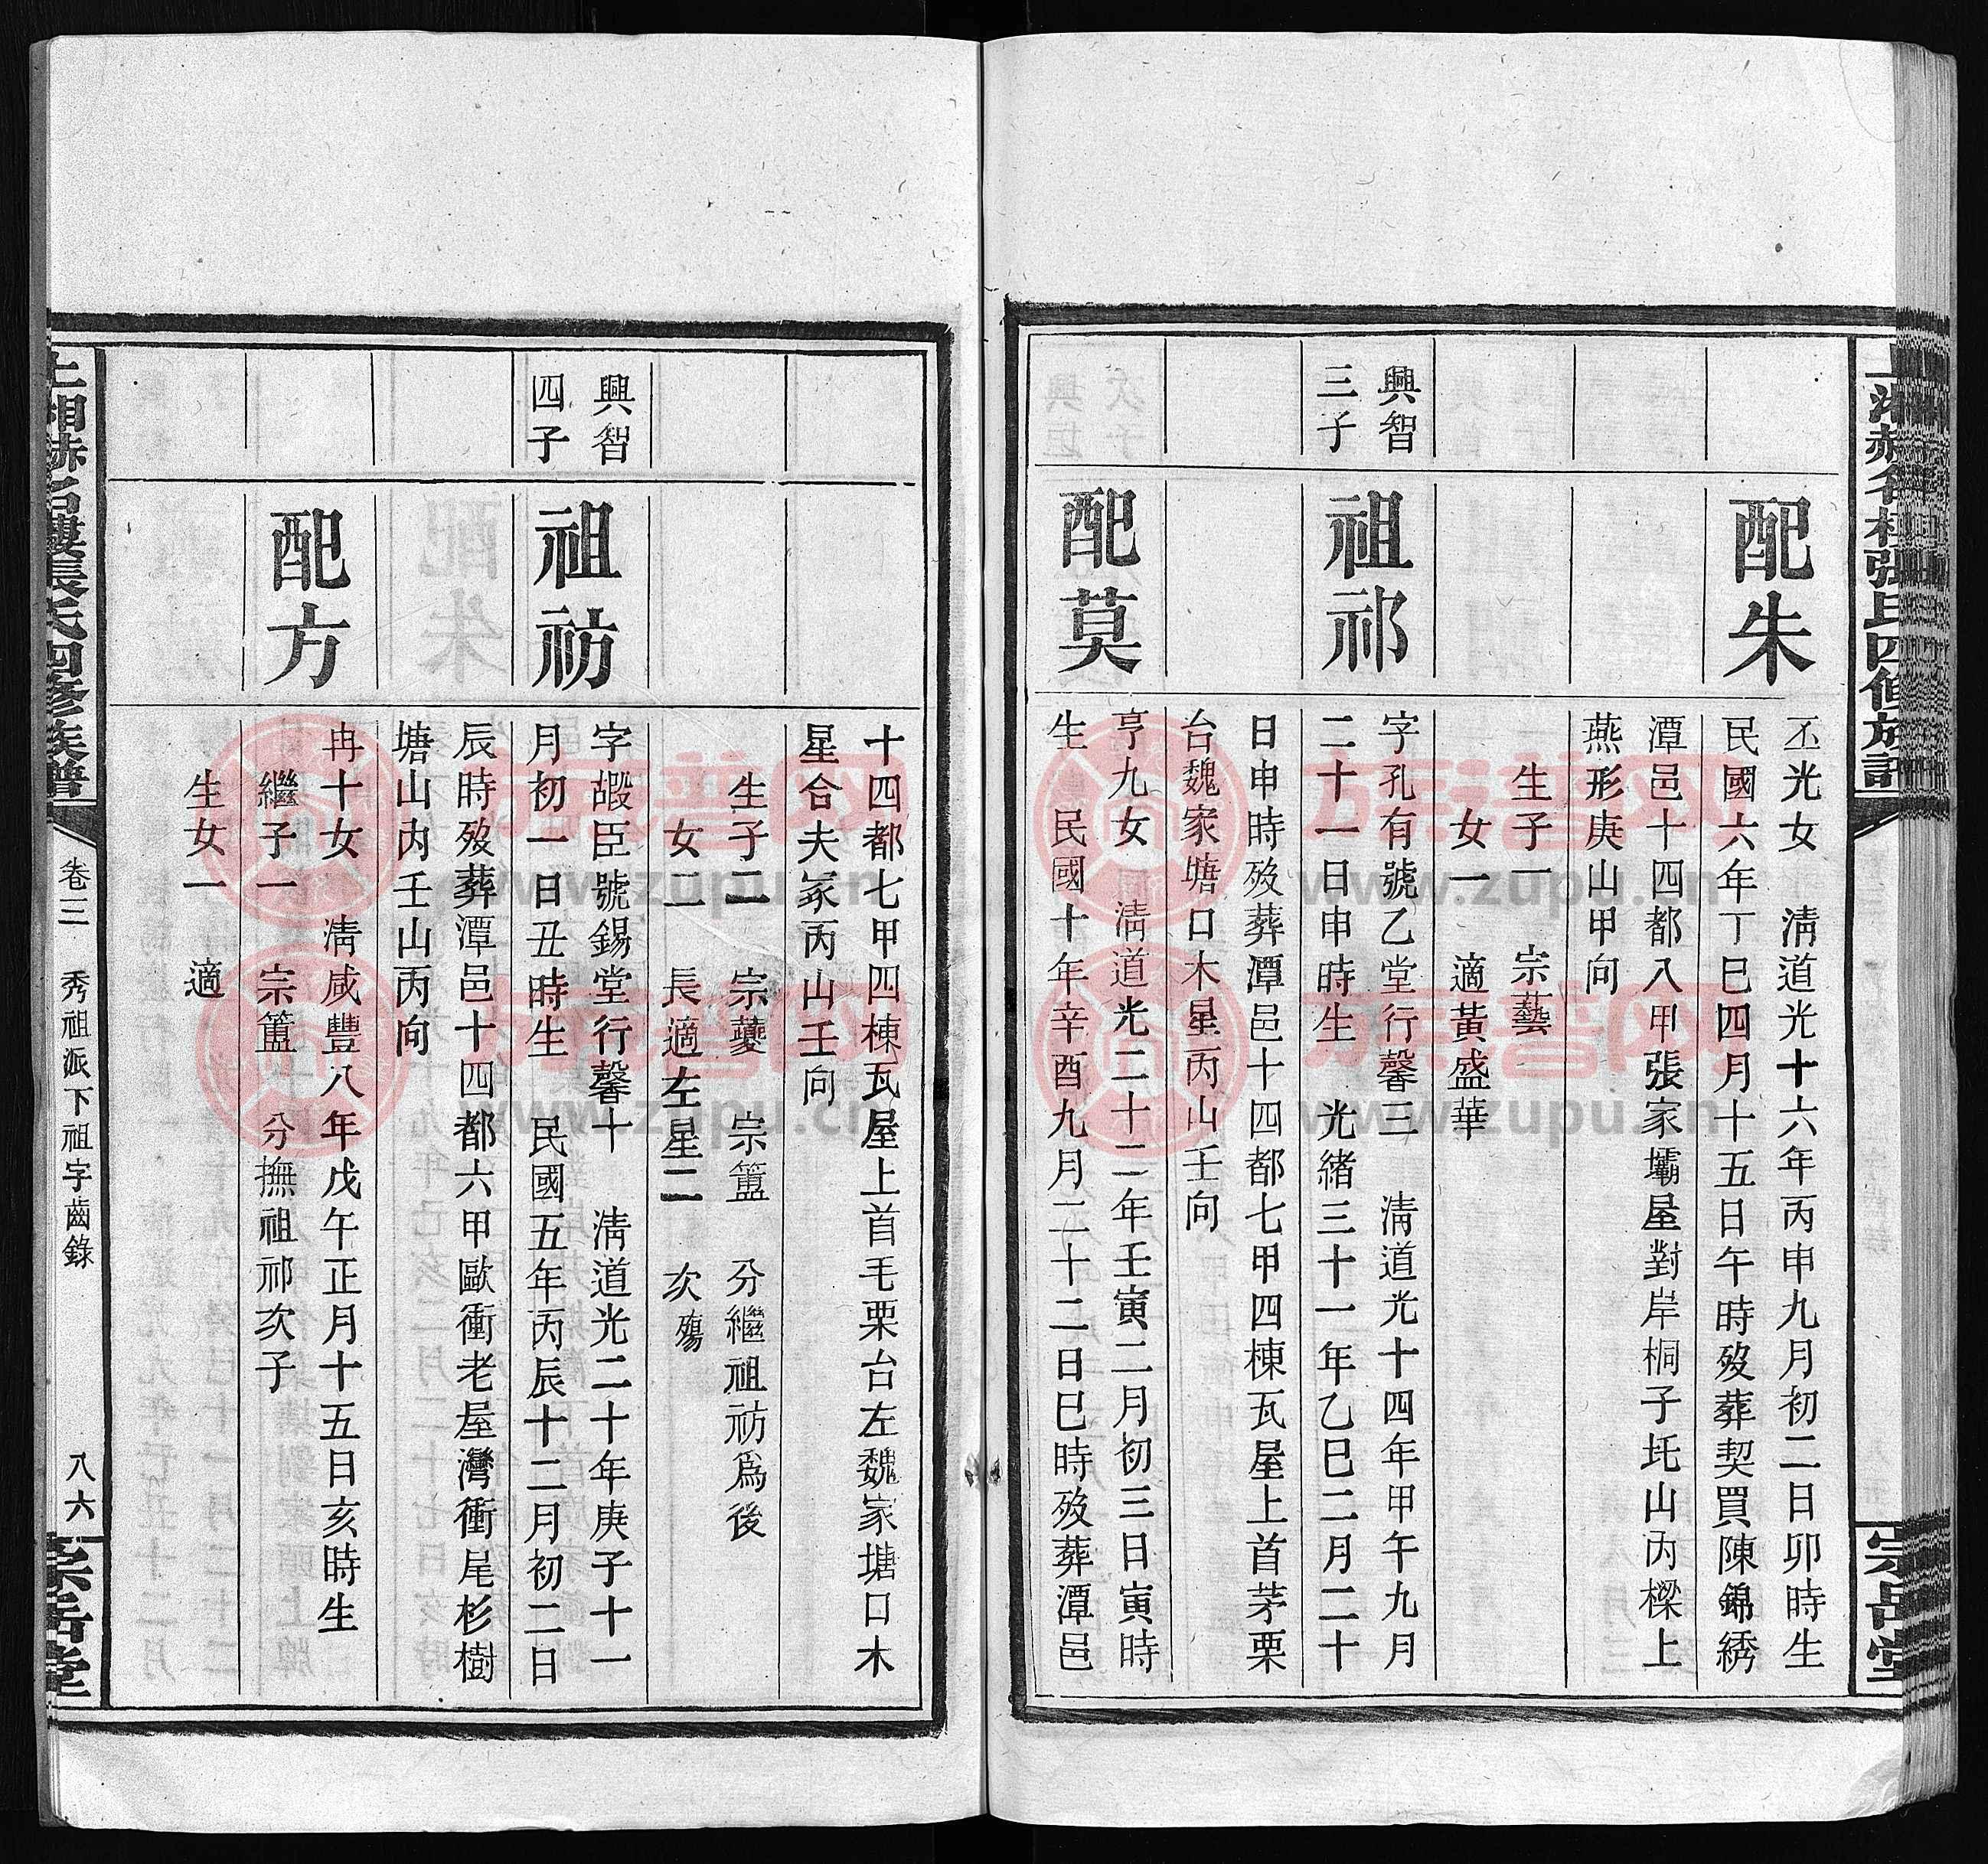 配朱
丕光女　清道光十六年丙申九月初二日卯時生
民國六年丁巳四月十五日午時歿葬契買陳錦綉
潭邑十四都八甲張家壩屋對岸桐子坵山內樑上
燕形庚山甲向
生子一　宗藝
女一　適黃盛華
興智
三子
祖祁
字孔有號乙堂行馨三　清道光十四年甲午九月
二十一日申時生　光緒三十一年乙巳二月二十
日申時歿葬潭邑十四都七甲四棟瓦屋上首茅栗
台魏家塘口木星丙山壬向
配莫
亨九女　清道光二十二年壬寅二月初三日寅時
生　民國十年辛酉九月二十二日巳時歿葬潭邑
十四都七甲四棟瓦屋上首毛栗台左魏家塘口木
星合夫冢丙山壬向
生子二　宗夔　宗簠　分繼祖祊爲後
女二　長適左星二　次殤
興智
四子
祖祊
字嘏臣號錫堂行馨十　清道光二十年庚子十一
月初一日丑時生　民國五年丙辰十二月初二日
辰時歿葬潭邑十四都六甲歐衝老屋灣衝尾杉樹
塘山內壬山丙向
配方
冉十女　清咸豐八年戊午正月十五日亥時生
繼子一　宗簠　分撫祖祁次子
生女一　適
氏四修族譜
卷三　秀祖派下祖字齒錄
八六
宗岳堂
族譜网
www.zupu.cn
族譜网
www.zupu.cn
族譜网
www.zupu.cn
族譜网
www.zupu.cn